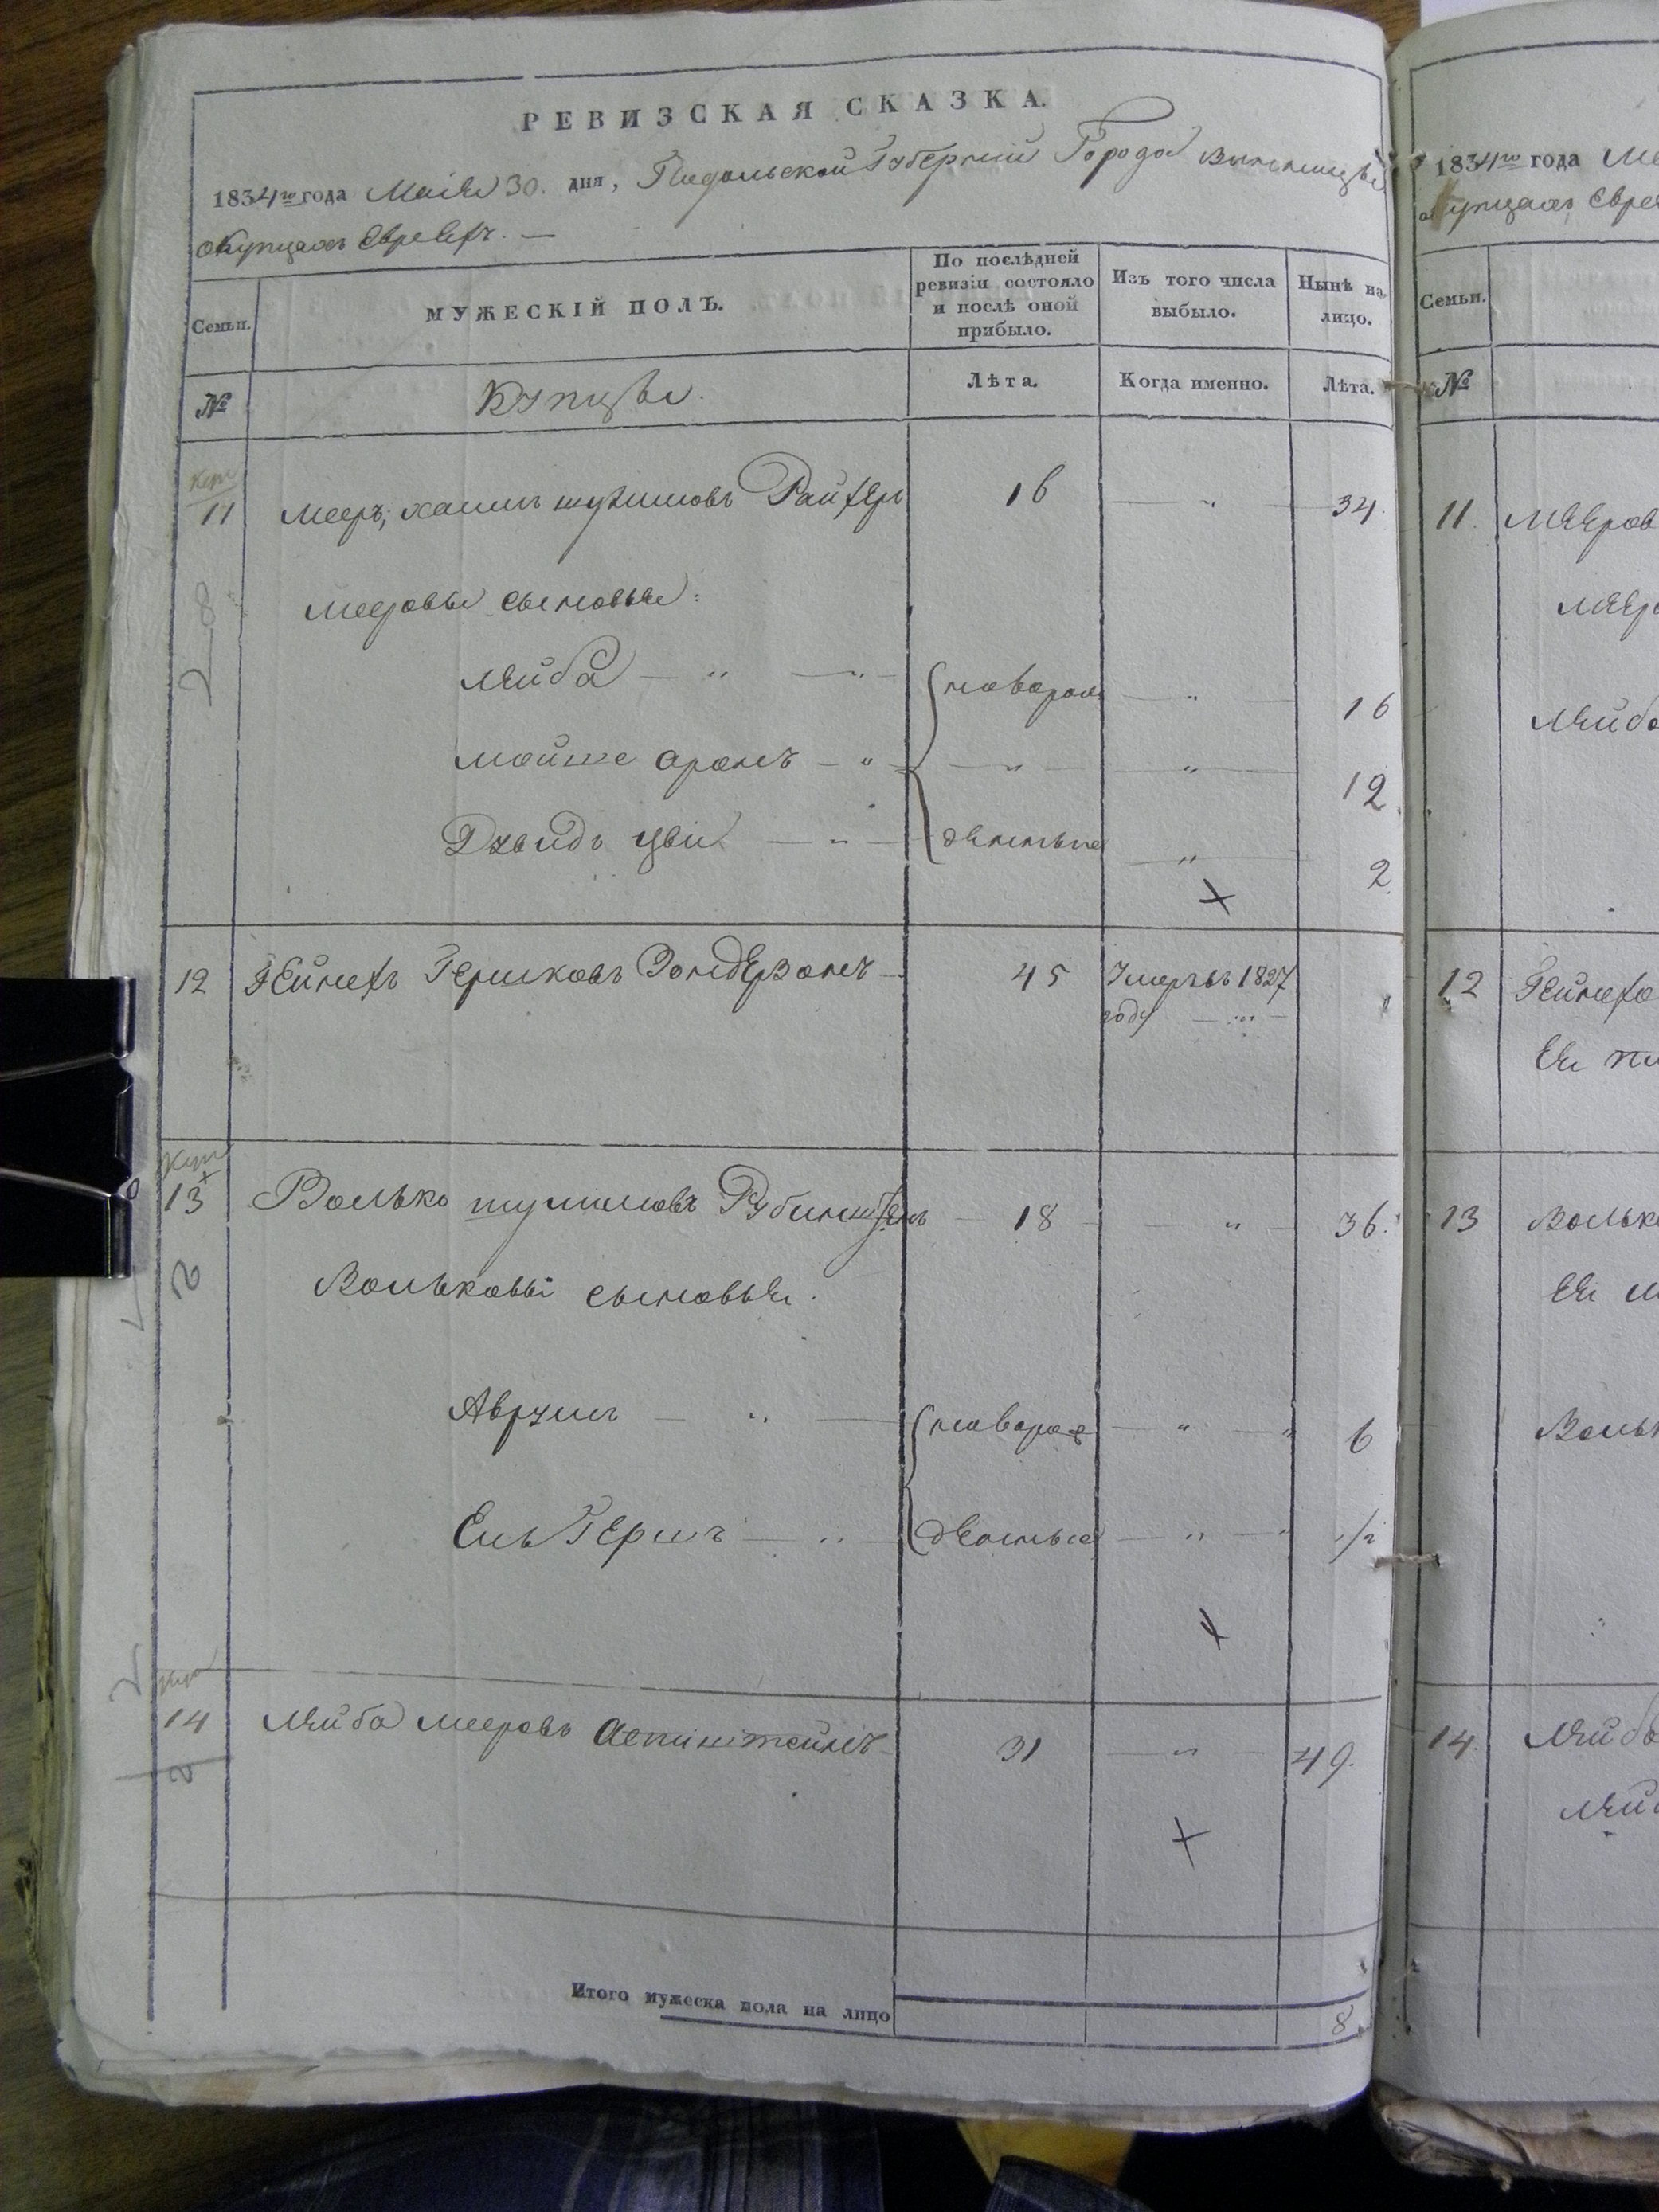 РЕВИЗСКАЯ СКАЗКА.
1834го года Маія 30. дня, Подольской Губерніи Города Винницы
о Купцахъ Евреяхъ. —
Семьи.
МУЖЕСКІЙ ПОЛЪ.
По послѣдней ревизіи состояло и послѣ оной прибыло.
Изъ того числа выбыло.
Нынѣ на лицо.
№
Купцы.
Лѣта.
Когда именно.
Лѣта.
Куп
11 Мееръ, хаимъ шулимовъ Райхер 16 — " — 34.
28
Мееровы сыновья:
Лейба — " — новорож — " — 16
Мойше аронъ — " — " — " — 12
Дувидъ Цви — " — денные — " — 2
12 Гейнехъ Гершковъ Зондерзонъ — 45 Умеръ въ 1827
году — " —
Куп
13 Волько шулимовъ — 18 — " — 36.
2
Вольковы сыновья.
Аврумъ — " — новорож — " — " 6
Ель Гершъ — " — денные — " — " 1/2
Куп
14 Лейба мееровъ 31 — " — 49.
2
Итого мужеска пола на лицо 8
1834го года Ма
о Купцахъ Евре
Семьи.
№
11. Мееров
Меер
Лейбо
12 Гейнехо
Ея
13 Вольк
Ея
Воль
14. Лейбо
Лей